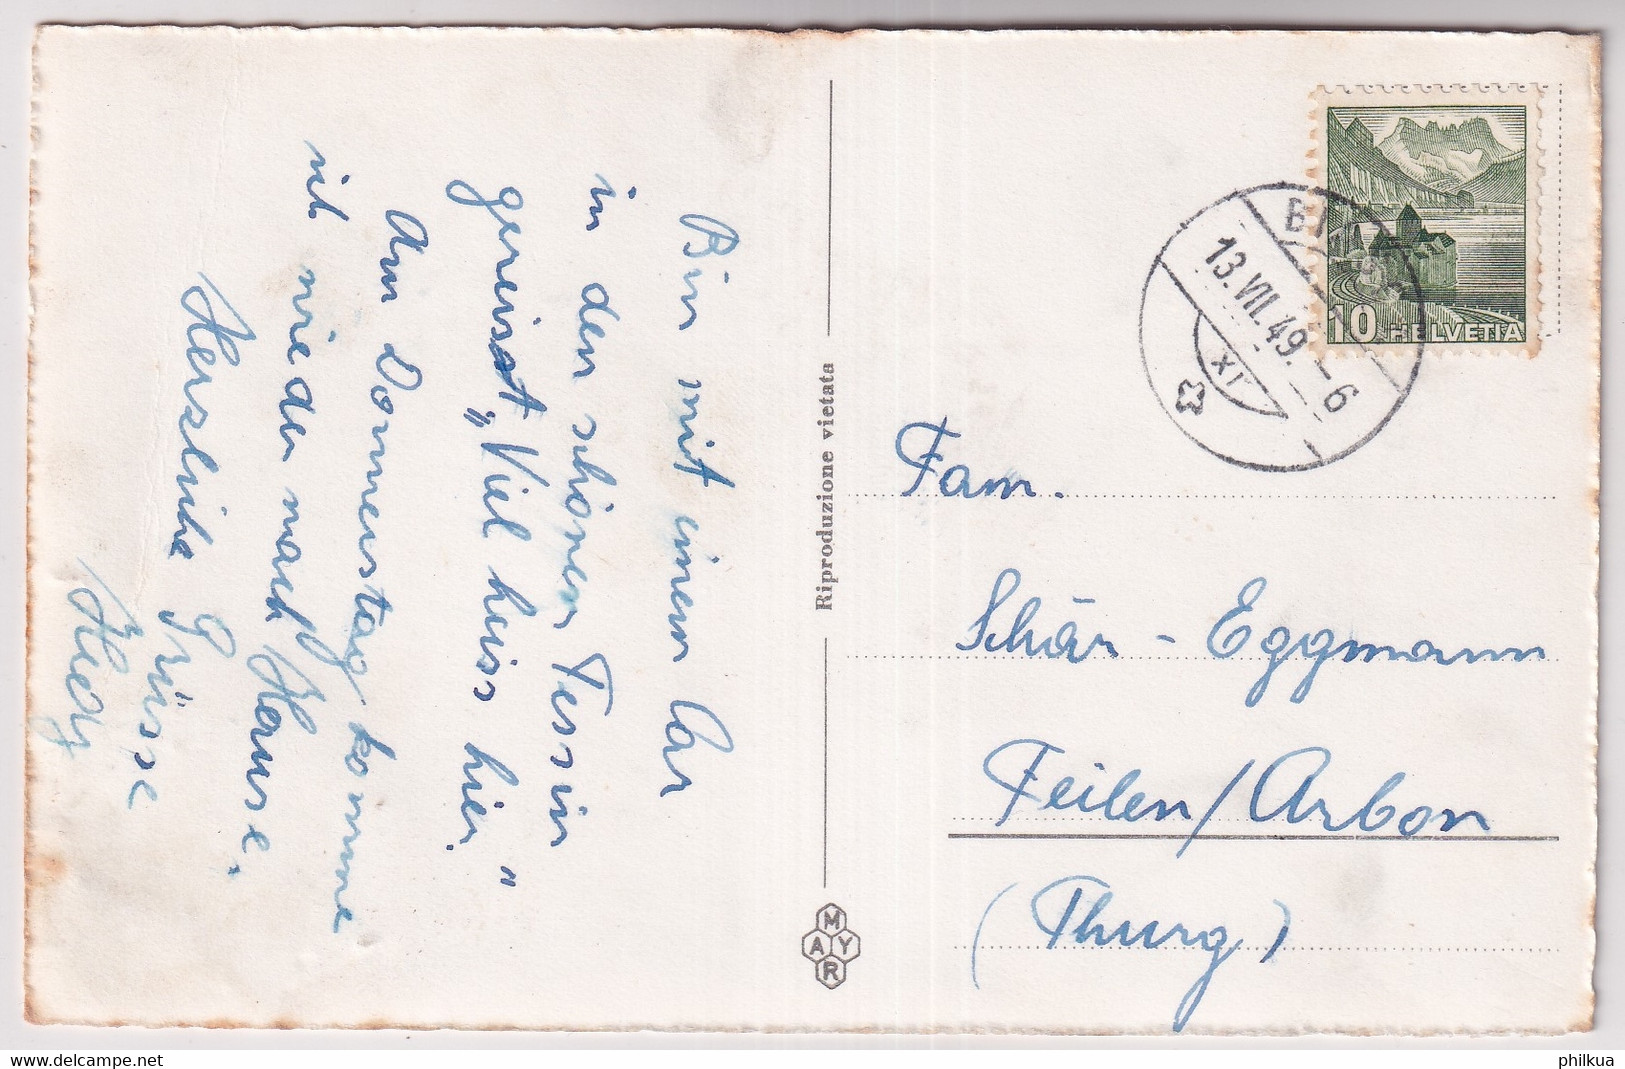 Bin mit einem Car
in den schönen Tessin
gereist „Viel heiss hier."
Am Donnerstag komme
ich wieder nach Hause.
Herzliche Grüsse
Hedy
Riproduzione vietata
MAYR
13.VII.49.-6
XI
10 HELVETIA
Fam.
Schär - Eggmann
Feilen/Arbon
(Thurg)
philkua